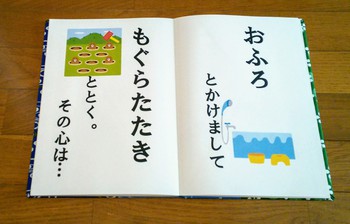 おふろ
とかけまして
もぐらたたき
ととく。
その心は…